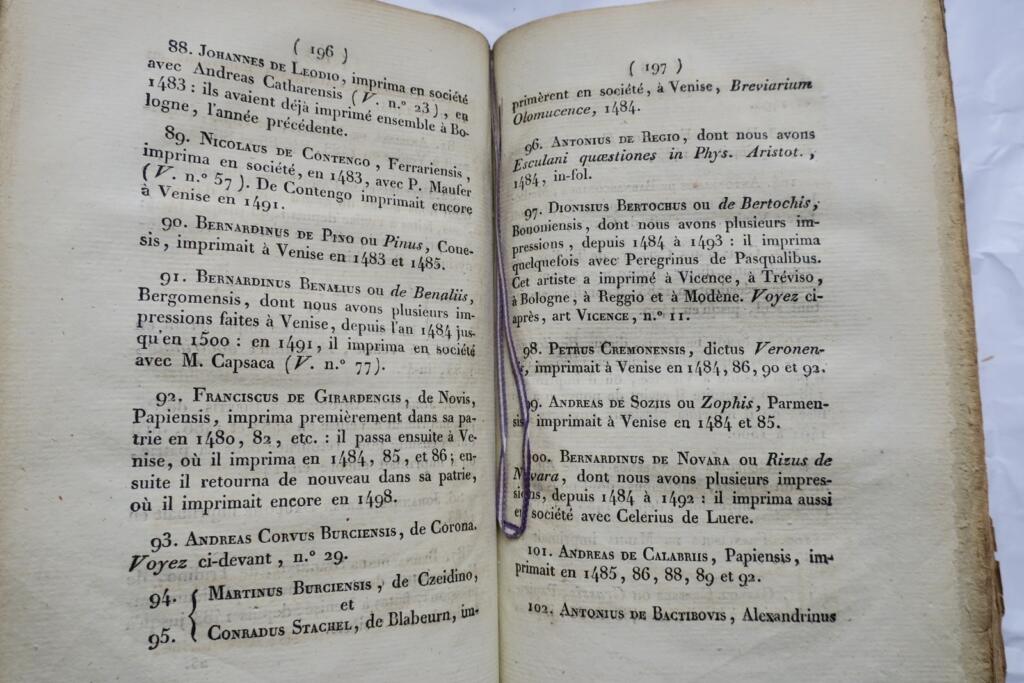 ( 196 )
88. JOHANNES DE LEODIO, imprima en société
avec Andreas Catharensis (V. n.º 23), en
1483 : ils avaient déjà imprimé ensemble à Bo-
logne, l'année précédente.
89. NICOLAUS DE CONTENGO, Ferrariensis,
imprima en société, en 1483, avec P. Maufer
(V. n.º 57). De Contengo imprimait encore
à Venise en 1491.
90. BERNARDINUS DE PINO ou Pinus, Coue-
sis, imprimait à Venise en 1483 et 1485.
91. BERNARDINUS BENALIUS ou de Benaliis,
Bergomensis, dont nous avons plusieurs im-
pressions faites à Venise, depuis l'an 1484 jus-
qu'en 1500 : en 1491, il imprima en société
avec M. Capsaca (V. n.º 77).
92. FRANCISCUS DE GIRARDENGIS, de Novis,
Papiensis, imprima premièrement dans sa pa-
trie en 1480, 82, etc. : il passa ensuite à Ve-
nise, où il imprima en 1484, 85, et 86; en-
suite il retourna de nouveau dans sa patrie,
où il imprimait encore en 1498.
93. ANDREAS CORVUS BURCIENSIS, de Corona.
Voyez ci-devant, n.º 29.
94. MARTINUS BURCIENSIS, de Czeidino,
et
95. CONRADUS STACHEL, de Blabeurn, im-
( 197 )
primèrent en société, à Venise, Breviarium
Olomucence, 1484.
96. ANTONIUS DE REGIO, dont nous avons
Esculani quæstiones in Phys. Aristot.,
1484, in-fol.
97. DIONISIUS BERTOCHUS ou de Bertochis,
Bononiensis, dont nous avons plusieurs im-
pressions, depuis 1484 à 1493 : il imprima
quelquefois avec Peregrinus de Pasqualibus.
Cet artiste a imprimé à Vicence, à Tréviso,
à Bologne, à Reggio et à Modène. Voyez ci-
après, art VICENCE, n.º 11.
98. PETRUS CREMONENSIS, dictus Veronen-
imprimait à Venise en 1484, 86, 90 et 92.
99. ANDREAS DE SOZIIS ou Zophis, Parmen-
sis imprimait à Venise en 1484 et 85.
100. BERNARDINUS DE NOVARA ou Rizus de
Novara, dont nous avons plusieurs impres-
sions, depuis 1484 à 1492 : il imprima aussi
en société avec Celerius de Luere.
101. ANDREAS DE CALABRIIS, Papiensis, im-
primait en 1485, 86, 88, 89 et 92.
102. ANTONIUS DE BACTIBOVIS, Alexandrinus